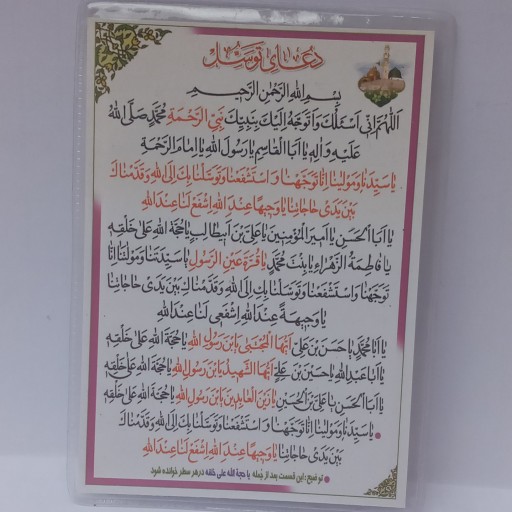 دعای توسل
بِسْمِ اللهِ الرَّحْمٰنِ الرَّحيمِ
اَللّٰهُمَّ اِنّي اَسْئَلُكَ وَ اَتَوَجَّهُ اِلَيْكَ بِنَبِيِّكَ نَبِيِّ الرَّحْمَةِ مُحَمَّدٍ صَلَّى اللهُ
عَلَيْهِ وَ اٰلِهِ يٰا اَبَا الْقٰاسِمِ يٰا رَسُولَ اللهِ يٰا اِمٰامَ الرَّحْمَةِ
يٰا سَيِّدَنٰا وَ مَوْلٰينٰا اِنّٰا تَوَجَّهْنٰا وَ اسْتَشْفَعْنٰا وَ تَوَسَّلْنٰا بِكَ اِلَى اللهِ وَ قَدَّمْنٰاكَ
بَيْنَ يَدَيْ حٰاجٰاتِنٰا يٰا وَجيهًا عِنْدَ اللهِ اِشْفَعْ لَنٰا عِنْدَ اللهِ
يٰا اَبَا الْحَسَنِ يٰا اَميرَ الْمُؤْمِنينَ يٰا عَلِيَّ بْنَ اَبيطٰالِبٍ يٰا حُجَّةَ اللهِ عَلىٰ خَلْقِهِ
يٰا فٰاطِمَةُ الزَّهْرٰاءِ يٰا بِنْتَ مُحَمَّدٍ يٰا قُرَّةَ عَيْنِ الرَّسُولِ يٰا سَيِّدَتَنٰا وَ مَوْلٰاتَنٰا اِنّٰا
تَوَجَّهْنٰا وَ اسْتَشْفَعْنٰا وَ تَوَسَّلْنٰا بِكِ اِلَى اللهِ وَ قَدَّمْنٰاكِ بَيْنَ يَدَيْ حٰاجٰاتِنٰا
يٰا وَجيهَةً عِنْدَ اللهِ اِشْفَعي لَنٰا عِنْدَ اللهِ
يٰا اَبٰا مُحَمَّدٍ يٰا حَسَنَ بْنَ عَلِيٍّ اَيُّهَا الْمُجْتَبىٰ يَا بْنَ رَسُولِ اللهِ يٰا حُجَّةَ اللهِ عَلىٰ خَلْقِهِ
يٰا اَبٰا عَبْدِ اللهِ يٰا حُسَيْنَ بْنَ عَلِيٍّ اَيُّهَا الشَّهيدُ يَا بْنَ رَسُولِ اللهِ يٰا حُجَّةَ اللهِ عَلىٰ خَلْقِهِ
يٰا اَبَا الْحَسَنِ يٰا عَلِيَّ بْنَ الْحُسَيْنِ يٰا زَيْنَ الْعٰابِدينَ يَا بْنَ رَسُولِ اللهِ يٰا حُجَّةَ اللهِ عَلىٰ خَلْقِهِ
يٰا سَيِّدَنٰا وَ مَوْلٰينٰا اِنّٰا تَوَجَّهْنٰا وَ اسْتَشْفَعْنٰا وَ تَوَسَّلْنٰا بِكَ اِلَى اللهِ وَ قَدَّمْنٰاكَ
بَيْنَ يَدَيْ حٰاجٰاتِنٰا يٰا وَجيهًا عِنْدَ اللهِ اِشْفَعْ لَنٰا عِنْدَ اللهِ
توضیح : این قسمت بعد از جمله یا حجة الله علی خلقه در هر سطر خوانده شود